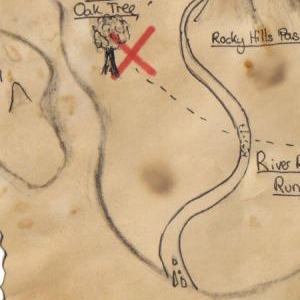 Oak Tree
Rocky Hills Pas
River R
Run